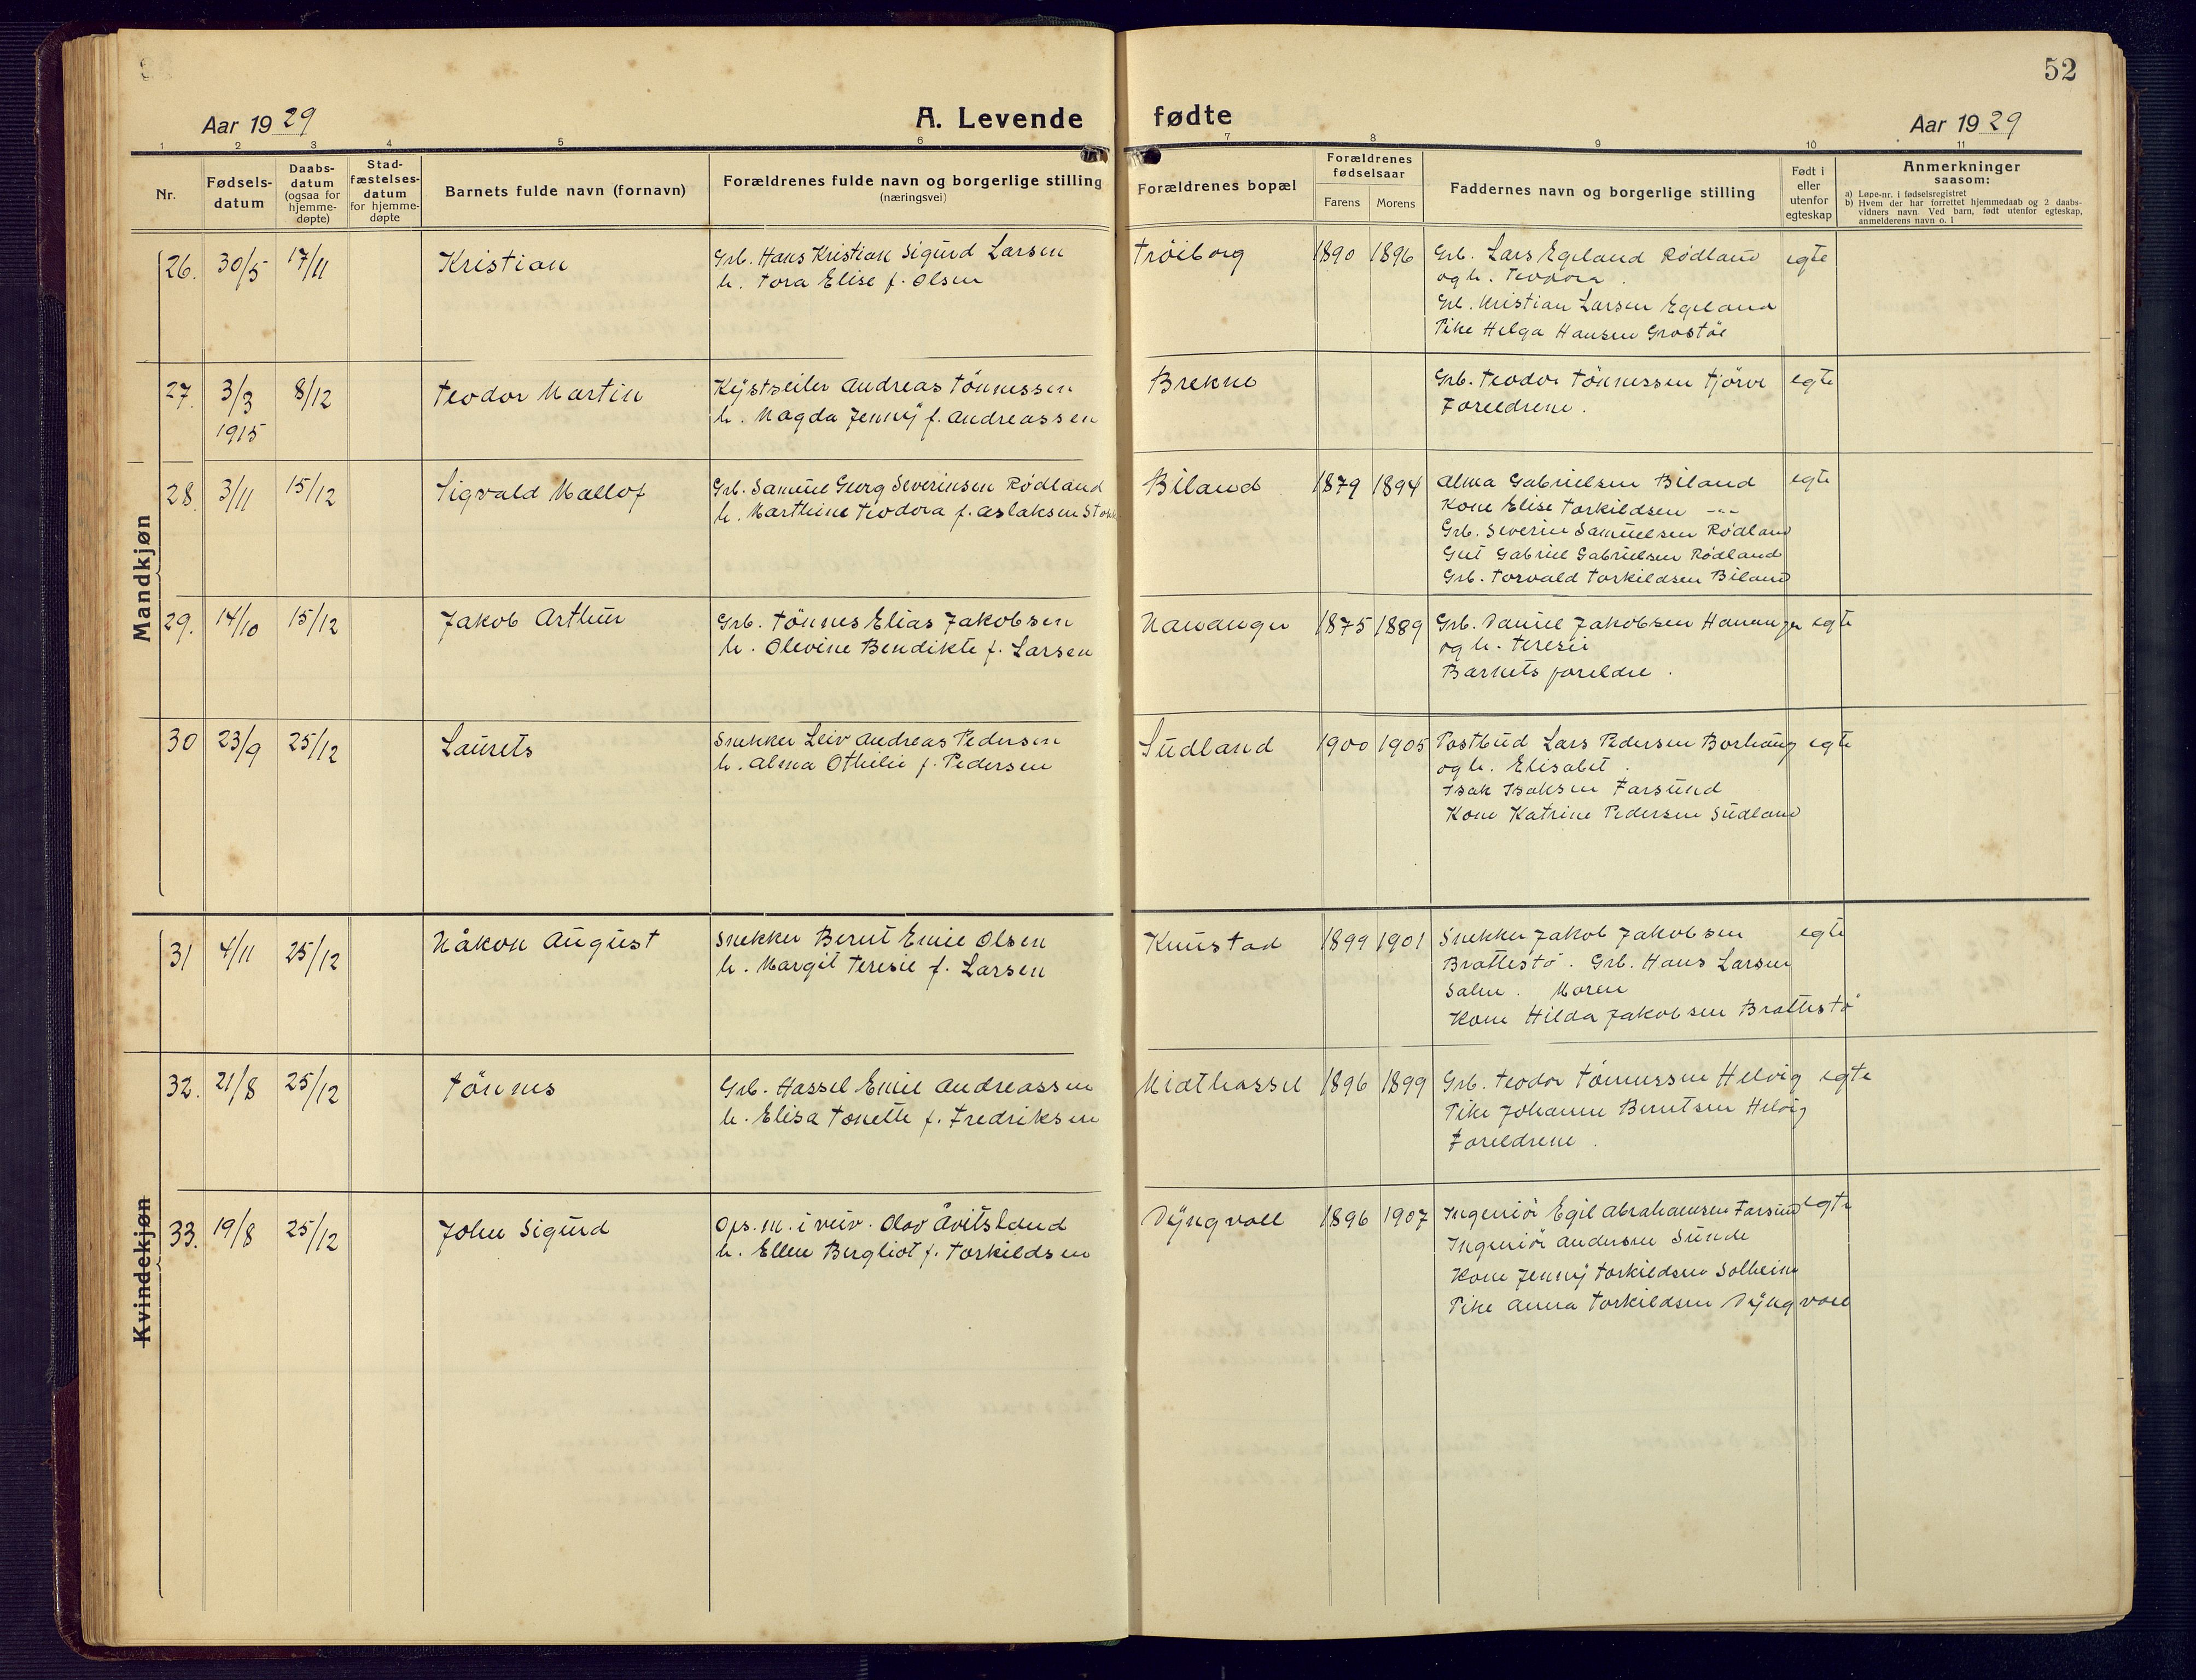 52
Aar 1929
A. Levende fødte
Aar 1929
1 2 3 4 5 6 7 8 9 10 11
Nr.
Fødsels-
datum
Daabs-
datum
(ogsaa for
hjemme-
døpte)
Stad-
fæstelses-
datum
for hjemme-
døpte
Barnets fulde navn (fornavn)
Forældrenes fulde navn og borgerlige stilling
(næringsvei)
Forældrenes bopæl
Forældrenes
fødselsaar
Farens Morens
Faddernes navn og borgerlige stilling
Født i
eller
utenfor
egteskap
Anmerkninger
saasom:
a) Løpe-nr. i fødselsregistret
b) Hvem der har forrettet hjemmedaab og 2 daabs-
vidners navn. Ved barn, født utenfor egteskap,
anmelderens navn o. l
Mandkjøn
26. 30/5 17/11 Kristian
Grb. Hans Kristian Sigurd Larsen
h. Tora Elise f. Olsen
Tröiborg 1890 1896
Grb. Lars Egeland Rødland
og h. Teodora.
Grb. Kristian Larsen Egeland
Pike Helga Hansen Grostöl
egte
27. 3/3 8/12 Teodor Martin
1915
Kystseiler Andreas Tönnessen
h. Magda Jenny f. Andreassen
Brekne
Grb. Teodor Tönnessen Tjörve
Foreldrene.
egte
28. 3/11 15/12 Sigvald Mallof
Grb. Samuel Georg Severinsen Rödland
h. Marthine Teodora f. Aslaksen
Biland 1879 1894
Alma Gabrielsen Biland
Kone Elise Torkildsen -"-
Grb. Severin Samuelsen Rödland
Gut Gabriel Gabrielsen Rödland
Grb. Torvald Torkildsen Biland
egte
29. 14/10 15/12 Jakob Arthur
Grb. Tönnes Elias Jakobsen
h. Olevine Bendikte f. Larsen
Hananger 1875 1889
Grb. Daniel Jakobsen Hananger
og h. Teresie
Barnets foreldre.
egte
30 23/9 25/12 Laurets
Snekker Leiv Andreas Pedersen
h. Alma Othelie f. Pedersen
Sudland 1900 1905
Postbud Lars Pedersen Borhaug
og h. Elisabet.
Isak Isaksen Farsund
Kone Katrine Pedersen Sudland
egte
Kvindekjøn
31 4/11 25/12 Håkon August
Snekker Bernt Emil Olsen
h. Margit Teresie f. Larsen
Knustad 1899 1901
Snekker Jakob Jakobsen
Brattestö. Grb. Hans Larsen
Salen. Moren
Kone Hilda Jakobsen Brattestö
egte
32. 21/8 25/12 Tönnes
Grb. Hassel Emil Andreassen
h. Elisa Tonette f. Fredriksen
Midthassel 1896 1899
Grb. Teodor Tönnessen Helvig
Pike Johanne Berntsen Helvig
Foreldrene.
egte
33. 19/8 25/12 John Sigurd
Ops.m. i veiv. Olav Åvitsland
h. Ellen Bergliot f. Torkildsen
Dyngvoll 1896 1907
Ingeniör Egil Abrahamsen Farsund
Ingeniör Andersen Sunde
Kone Jenny Torkildsen Solheim
Pike Anna Torkildsen Dyngvoll
egte